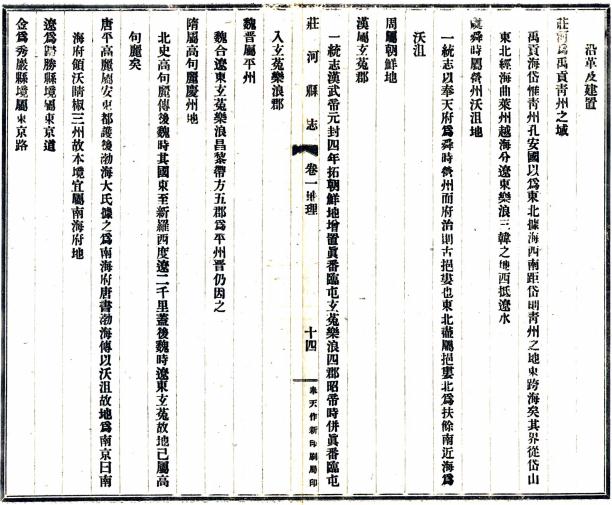 沿革及建置
莊河爲禹貢青州之域
禹貢海岱惟青州孔安國以爲東北據海西南距岱則青州之地東跨海矣其界從岱山
東北經海曲萊州越海分遼東樂浪三韓之地西抵遼水
虞舜時屬營州沃沮地
一統志以奉天府爲舜時營州而府治則古挹婁也東北盡屬挹婁北爲扶餘南近海爲
沃沮
周屬朝鮮地
漢屬玄菟郡
一統志漢武帝元封四年拓朝鮮地增置眞番臨屯玄菟樂浪四郡昭帝時併眞番臨屯
莊河縣志
卷一地理
十四
奉天作新印刷局印
入玄菟樂浪郡
魏晉屬平州
魏合遼東玄菟樂浪昌黎帶方五郡爲平州晉仍因之
隋屬高句麗慶州地
北史高句麗傳後魏時其國東至新羅西度遼二千里蓋後魏時遼東玄菟故地已屬高
句麗矣
唐平高麗屬安東都護後渤海大氏據之爲南海府唐書渤海傳以沃沮故地爲南京曰南
海府領沃睛椒三州故本境宜屬南海府地
遼爲勝縣境屬東京道
金爲秀巖縣境屬東京路